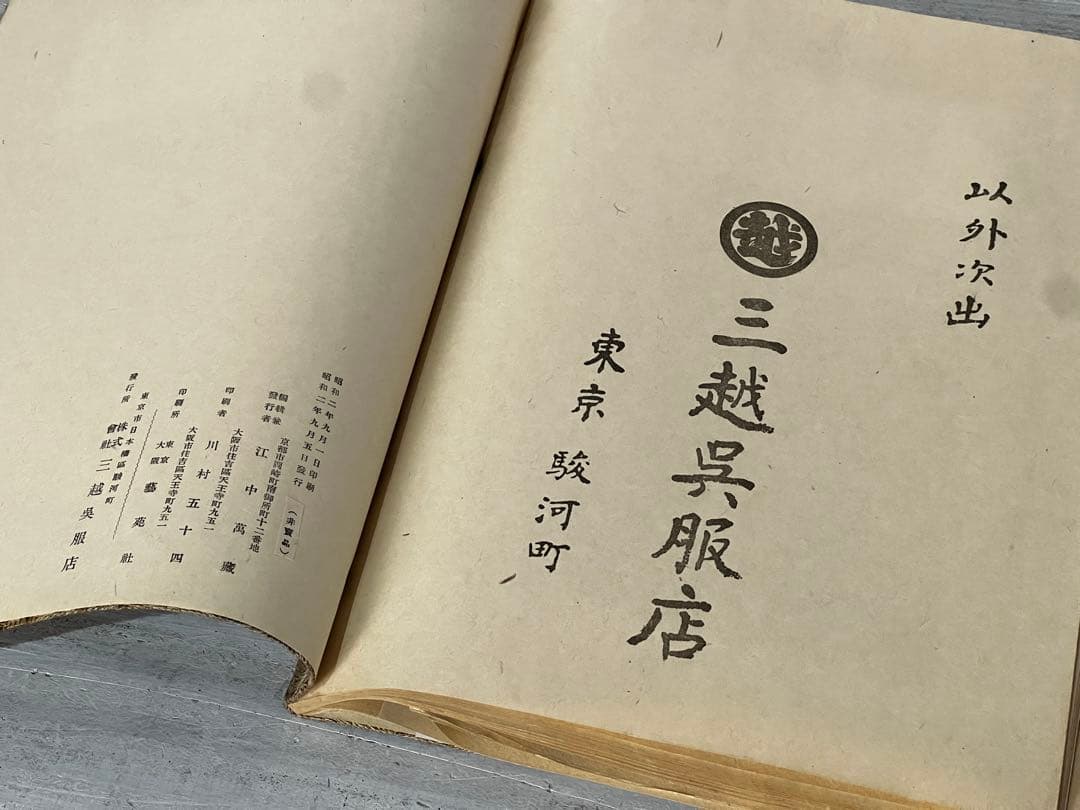 以外次出
越
三越呉服店
東京 駿河町
昭和二年九月一日印刷
昭和二年九月五日發行
(非賣品)
編輯兼
發行者
京都市四條町南御所町十二番地
江中萬藏
印刷者
大阪市住吉區天王寺町九五一
川村五十四
印刷所
大阪市住吉區天王寺町九五一
東京
大阪
藝苑社
東京市日本橋區駿河町
發行所
株式
會社
三越呉服店